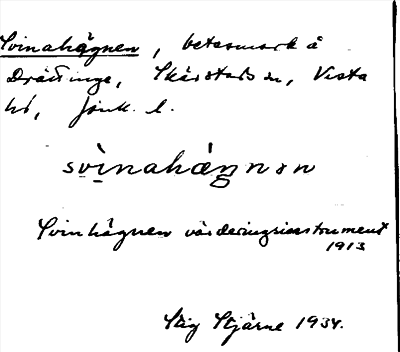 Svinahägnen, betesmark å
Drättinge, Skärstads sn, Vista
hd, Jönk. l.
svinahägnən
Svinhägnen värderingsinstrument
1913
Stig Stjärne 1934.